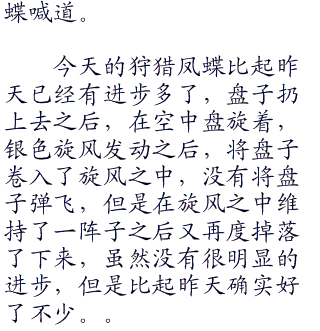 蝶喊道。
今天的狩猎凤蝶比起昨
天已经有进步多了，盘子扔
上去之后，在空中盘旋着，
银色旋风发动之后，将盘子
卷入了旋风之中，没有将盘
子弹飞，但是在旋风之中维
持了一阵子之后又再度掉落
了下来，虽然没有很明显的
进步，但是比起昨天确实好
了不少。。